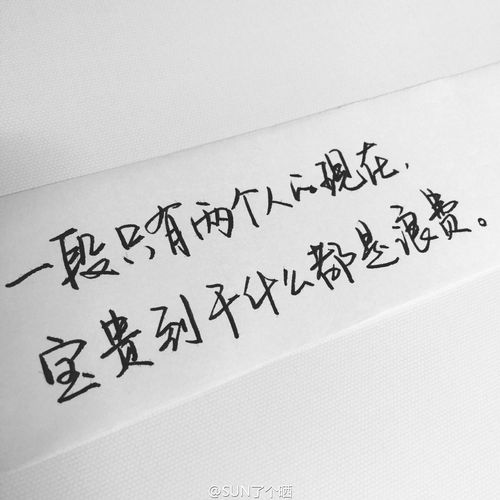 一段只有两个人的现在，
宝贵到干什么都是浪费。
@SUN了个晒